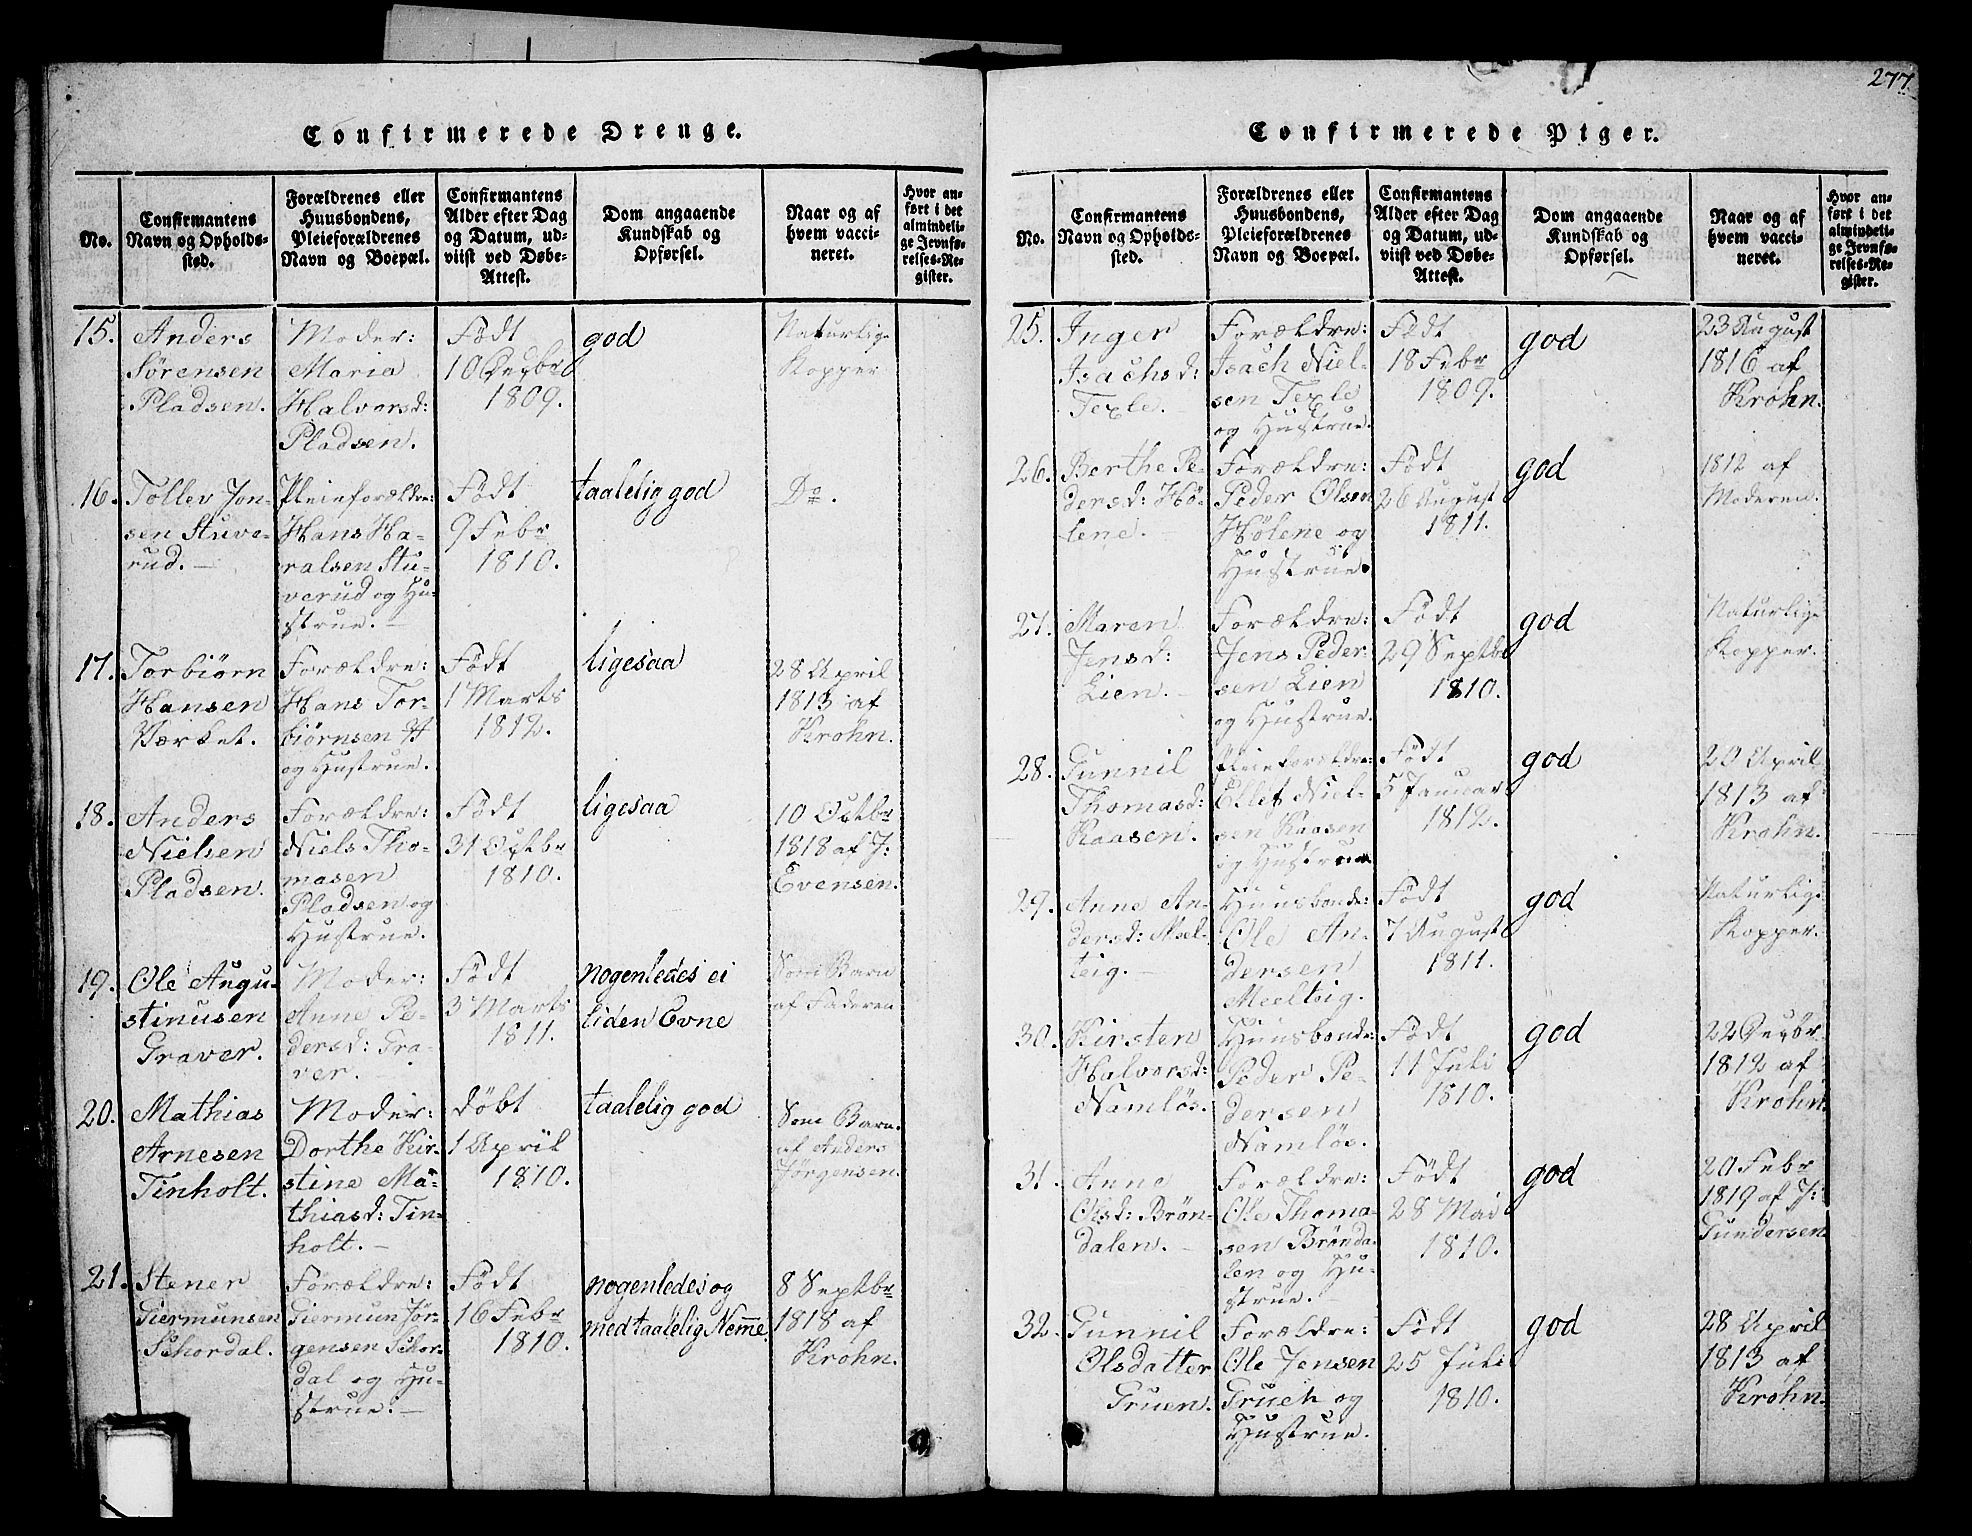 277.
Confirmerede Drenge.
No.
Confirmantens
Navn og Opholds-
sted.
Forældrenes eller
Huusbondens,
Pleieforældrenes
Navn og Boepæl.
Confirmantens
Alder efter Dag
og Datum, ud-
viist ved Døbe-
Attest.
Dom angaaende
Kundskab og
Opførsel.
Naar og af
hvem vacci-
neret.
Hvor an-
ført i det
almindeli-
ge Jevnfø-
relses-Re-
gister.
15.
Anders
Sørensen
Pladsen.
Moder:
Maria
Halvorsd:
Pladsen.
Født
10 Decbr
1809.
god
Naturlige
Kopper
16.
Tollev Jon-
sen Stuve-
rud. –
Pleieforældre:
Hans Ha-
ralsen Stu-
verud og Hu-
strue. –
Født
9 Febr
1810.
taalelig god
Do.
17.
Torbiørn
Hansen
Værket.
Forældre:
Hans Tor-
biørnsen
og Hustrue.
Født
1 Marts
1812.
ligesaa
28 April
1813 af
Krohn.
18.
Anders
Nielsen
Pladsen.
Forældre:
Niels Tho-
masen
Pladsen og
Hustrue.
Født
31 Octbr
1810.
ligesaa
10 Octbr
1818 af J:
Evensen.
19.
Ole Augu-
stinusen
Graver.
Moder:
Anne Pe-
dersd: Gra-
ver. –
Født
3 Marts
1811.
nogenledes ei
liden Evne
Som Barn
af Faderen
20.
Mathias
Arnesen
Tinholt.
Moder:
Dorthe Kir-
stine Ma-
thiasd: Tin-
holt. –
døbt
1 April
1810.
taalelig god
Som Barn
af Anders
Jörgensen.
21.
Stener
Giermunsen
Skordal.
Forældre:
Giermun Jør-
gensen Skor-
dal og Hu-
strue. –
Født
16 Febr
1810.
nogenledes og
med taalelig Nemme
8 Septbr
1818 af
Krohn.
Confirmerede Piger.
No.
Confirmantens
Navn og Opholds-
sted.
Forældrenes eller
Huusbondens,
Pleieforældrenes
Navn og Boepæl.
Confirmantens
Alder efter Dag
og Datum, ud-
viist ved Døbe-
Attest.
Dom angaaende
Kundskab og
Opførsel.
Naar og af
hvem vacci-
neret.
Hvor an-
ført i det
almindeli-
ge Jevnfø-
relses-Re-
gister.
25.
Inger
Isachsd:
Texle. –
Forældre:
Isach Niel-
sen Texle
og Hustrue.
Født
18 Febr
1809.
god
23 August
1816 af
Krohn.
26.
Berthe Pe-
dersd: Hø-
lene. –
Forældre:
Peder Olsen
Hølene og
Hustrue.
Født
26 August
1811.
god
1812 af
Moderen.
27.
Maren
Jensd:
Lien. –
Forældre:
Jens Peder-
sen Lien
og Hustrue.
Født
29 Septbr
1810.
god
Naturlige
Kopper.
28.
Gunnil
Thomasd:
Kaasen.
Pleieforældre:
Ellef Niel-
sen Kaasen
og Hustrue
Født
5 Januar
1812.
god
20 April
1813 af
Krohn.
29.
Anne An-
dersd: Meel-
teig. –
Huusbonde:
Ole An-
dersen
Meelteig.
Født
7 August
1811.
god
Naturlige
Kopper.
30.
Kirsten
Halvorsd:
Namløs.
Huusbonde:
Peder Pe-
dersen
Namløs.
Født
11 Juli
1810.
god
22 Decbr
1812 af
Krohn.
31.
Anne
Olsd: Brøn-
dalen. –
Forældre:
Ole Thoma-
sen Brønda-
len og Hu-
strue. –
Født
28 Mai
1810.
god
20 Febr
1819 af J:
Gundersen
32.
Gunnil
Olsdatter
Gruen.
Forældre:
Ole Jensen
Grueh og
Hustrue.
Født
25 Juli
1810.
god
28 April
1813 af
Krohn.